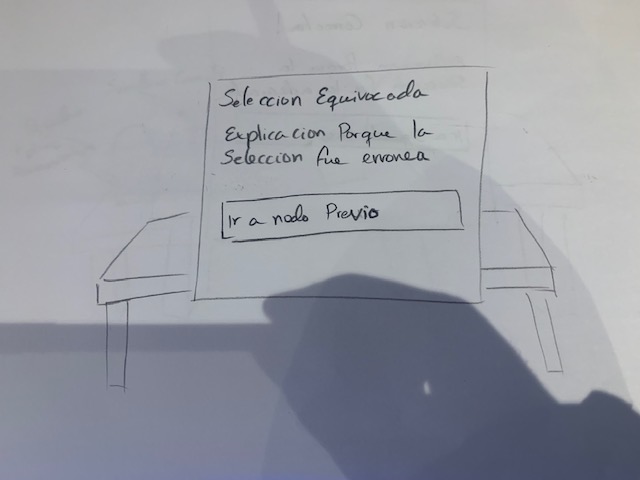 Seleccion Equivocada
Explicacion Porque la
Seleccion fue erronea
Ir a nodo Previo